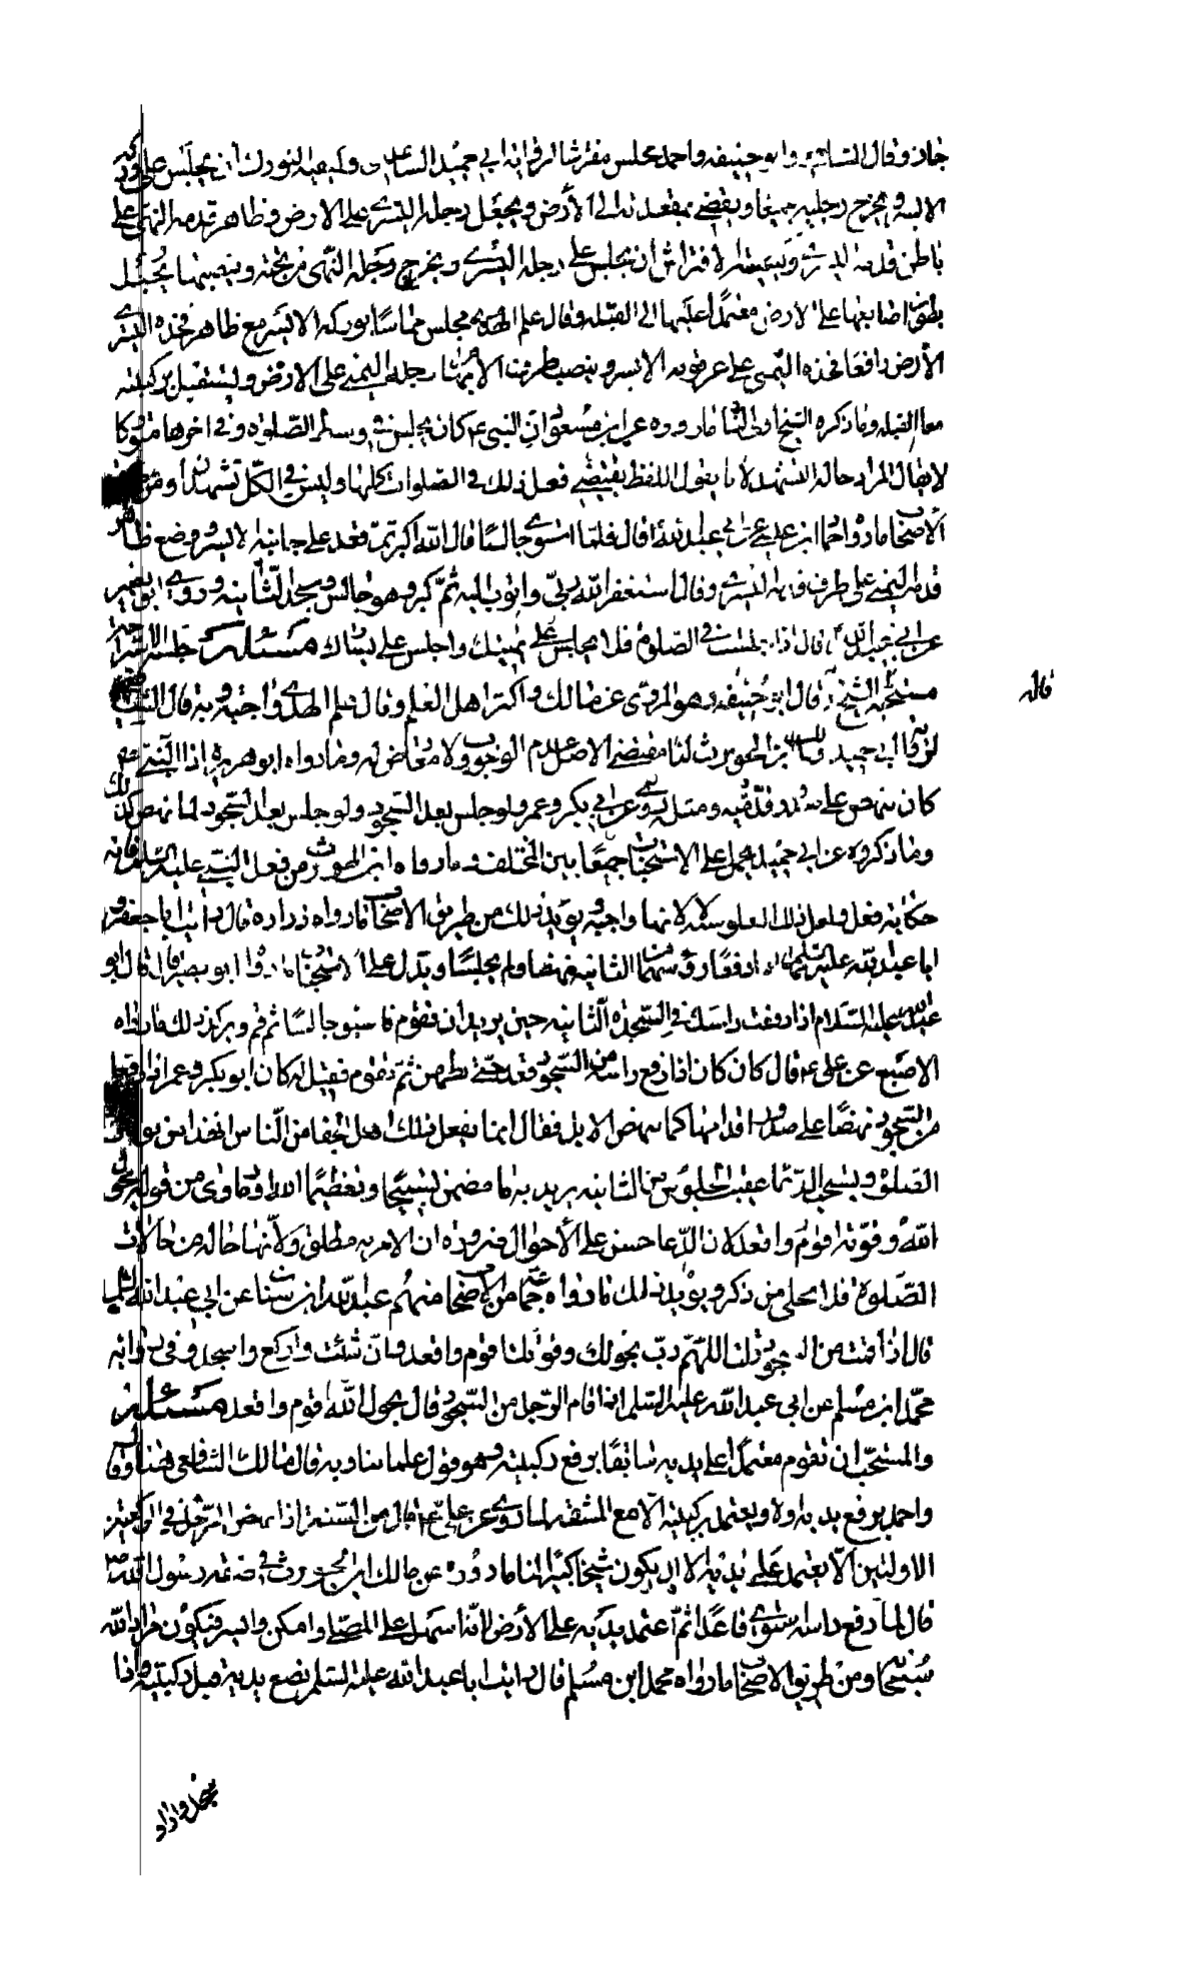 جاز وقال الشافعي وابو حنيفة واحمد يجلس مفترشا لرواية ابي حميد الساعدي وكيفية التورك ان يجلس على وركه
الايسر ويخرج رجليه جميعا ويفضي بمقعدته الى الأرض ويجعل رجله اليسرى على الارض وظاهر قدمه اليمنى على
باطن قدمه اليسرى وكيفية الافتراش ان يجلس على رجله اليسرى ويخرج رجله اليمنى من تحته وينصبها ويجعل
بطون اصابعها على الارض معتمدا عليها الى القبلة وقال علم الهدى يجلس مماسا بوركه الايسر مع ظاهر فخذه اليسرى
الأرض رافعا فخذه اليمنى على عرقوبه الايسر وينصب طرف ابهام رجله اليمنى على الارض ويستقبل بركبتيه
معا القبلة وما ذكره الشيخ اولى لنا ما رووه عن ابن مسعود ان النبي ع كان يجلس في وسط الصلوة وفي اخرها متوركا
لا يقال المراد حالة التشهد لانا نقول اللفظ يقتضي فعل ذلك في الصلوات كلها وليس في الكل تشهدان ومن
الأصحاب ما رواه حماد ابن عيسى عن ابي عبد الله ع قال فلما استوى جالسا قال الله اكبر ثم قعد على جانبه الايسر ووضع ظاهر
قدمه اليمنى على طرف قدمه اليسرى وقال استغفر الله ربي واتوب اليه ثم كبر وهو جالس وسجد الثانية وروى ابو بصير
عن ابي عبد الله ع قال اذا جلست في الصلوة فلا تجلس على يمينك واجلس على يسارك مسئلة جلسة الاستراحة
مستحبة قاله الشيخ قال ابو حنيفة وهو المروي عن مالك واكثر اهل العلم وقال علم الهدى واجبة وبه قال الشافعي
لرواية ابي حميد ومالك بن الحويرث لنا مقتضى الاصل عدم الوجوب ولا معارض له وما رواه ابو هريرة اذا النبي ص
كان ينهض على صدور قدميه ومثله روى عن ابي بكر وعمر ولو جلس بعد السجود ولو جلس بعد السجود لما نهض كذلك
وما ذكروه عن ابي حميد يحمل على الاستحباب جمعا بين المختلف وما رواه ابن الحويرث من فعل النبي عليه السلم فانه
حكاية فعل ولعل ذلك العلو سنه لا لانها واجبة ويؤيد ذلك من طريق الاصحاب ما رواه زرارة قال رأيت ابا جعفر و
ابا عبد الله عليهما السلم اذا رفعا رؤسهما من الثانية نهضا ولم يجلسا ويدل على الاستحباب ما رواه ابو بصير قال قال ابو
عبد الله عليه السلام اذا رفعت رأسك في السجدة الثانية حين تريد ان تقوم فاستو جالسا ثم قم ويؤكد ذلك ما رواه
الاصبغ عن علي ع قال كان كان اذا رفع راسه من السجود قعد حتى يطمئن ثم يقوم فقيل له كان ابو بكر وعمر اذا رفعا
من السجود نهضا على صدور اقدامهما كما ينهض الابل فقال انما يفعل ذلك اهل الجفا من الناس ان هذا من توقير
الصلوة ويستحب الدعا عقيب الجلوس من الثانية يريد به ما مضمن تسبيحا وتعظيما الله اوما روى من قوله بحول
الله وقوته اقوم واقعد لان الدعا حسن على كل الأحوال ضرورة ان الامر به مطلق ولأنها حالة من حالات
الصلوة فلا يخلى من ذكر ويؤيد ذلك ما رواه جماعة من الاصحاب منهم عبد الله ابن سنان عن ابي عبد الله عليه السلم
قال اذا قمت من السجود قلت اللهم رب بحولك وقوتك اقوم واقعد وان شئت واركع واسجد وفي رواية
محمد ابن مسلم عن ابي عبد الله عليه السلم اذا قام الرجل من السجود قال بحول الله اقوم واقعد مسئلة
والمستحب ان تقوم معتمدا على يديه سابقا برفع ركبتيه وهو قول علمائنا وبه قال مالك الشافعي هنا وقال
واحمد يرفع يديه اولا ويعتمد ركبتيه الا مع المشقة لما روى عن علي ع قال من السنة اذا نهض الرجل في الركعتين
الاوليتين الا يعتمد على يديه الا ان يكون شيخا كبيرا لنا ما رووه عن مالك ابن الحويرث في صفة رسول الله ص
قال لما رفع راسه استوى قاعدا ثم اعتمد بيديه على الأرض لانه اسهل على المصلي وامكن وايسر فيكون مراد الله
سبحانه ومن طريق الاصحاب ما رواه محمد ابن مسلم قال رايت ابا عبد الله عليه السلم يضع يديه قبل ركبتيه واذا
قاله
سجد واذا